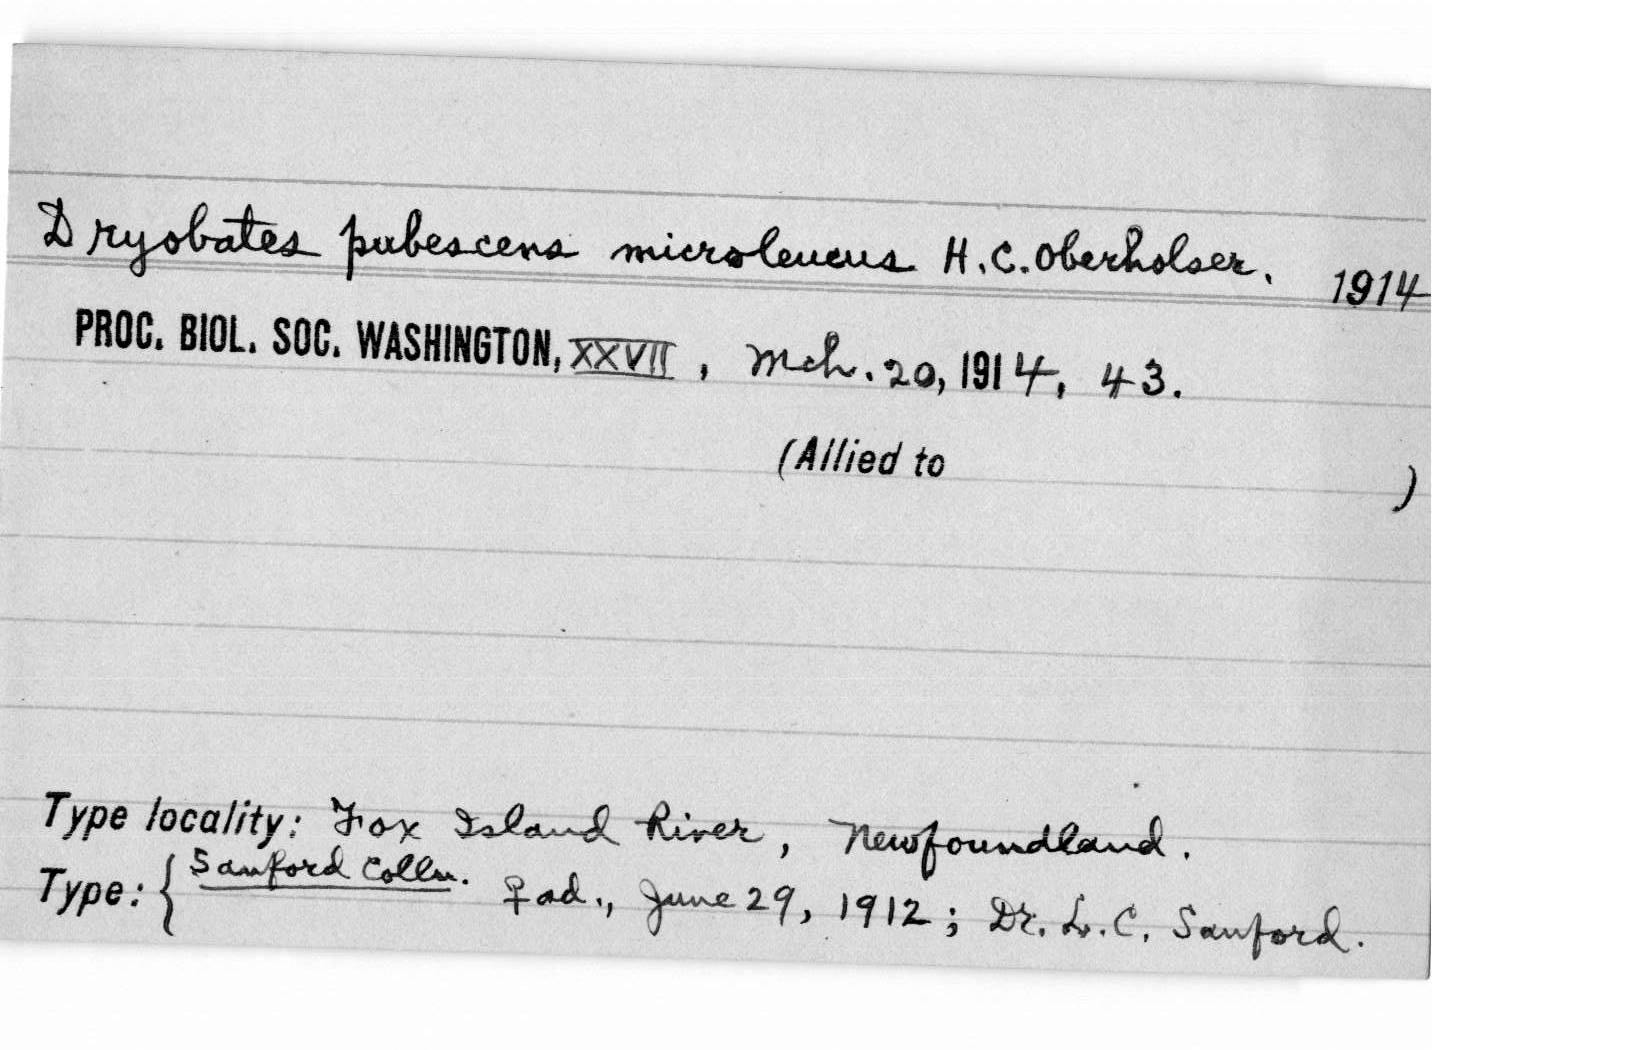 Dryobates pubescens microleucus H.C. Oberholser. 1914
PROC. BIOL. SOC. WASHINGTON, XXVII, Mch. 20, 1914, 43.
(Allied to )
Type locality: Fox Island River, Newfoundland.
Type: { Sanford Colln. ♀ ad., June 29, 1912; Dr. L. C. Sanford.